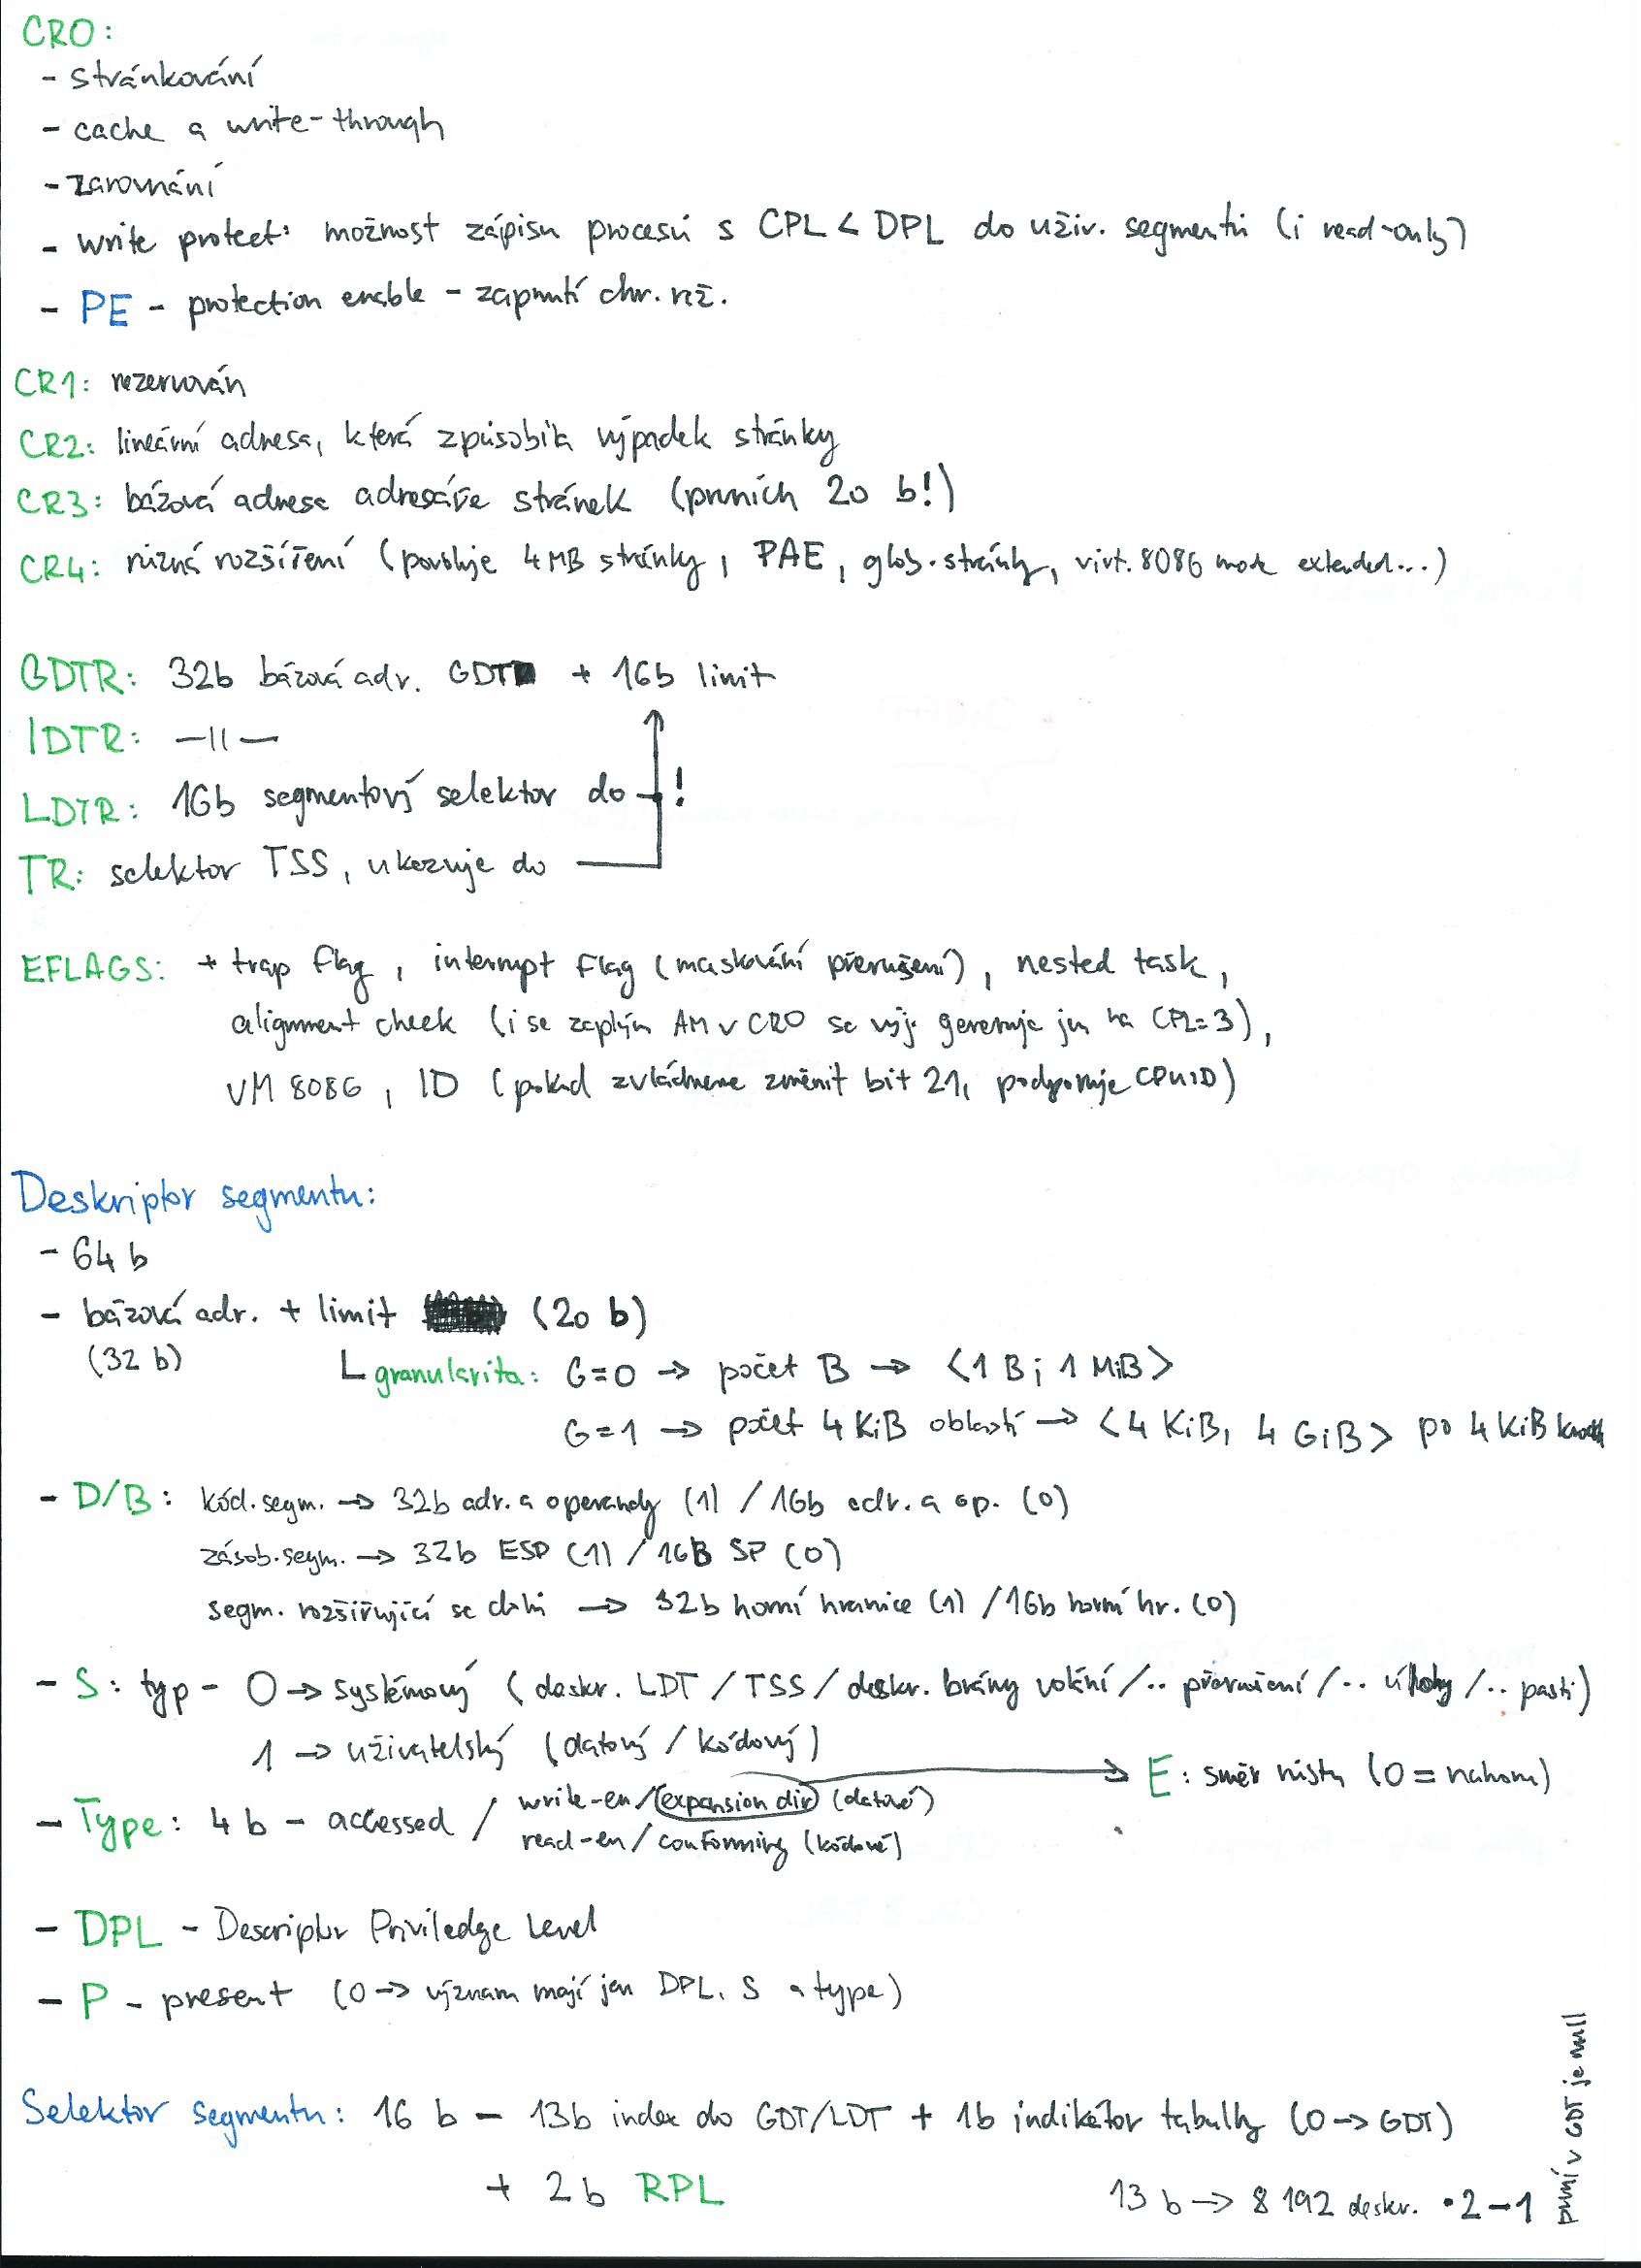 CR0:
- stránkování
- cache a write-through
- zarovnání
- write protect: možnost zápisu procesů s CPL < DPL do uživ. segmentů (i read-only)
- PE - protection enable - zapnutí chr. rež.
CR1: rezervován
CR2: lineární adresa, která způsobila výpadek stránky
CR3: bázová adresa adresáře stránek (prvních 20 b!)
CR4: různá rozšíření (povoluje 4MB stránky, PAE, glob. stránky, virt. 8086 mode extended...)
GDTR: 32b bázová adr. GDT + 16b limit
IDTR: —||—
LDTR: 16b segmentový selektor do !
TR: selektor TSS, ukazuje do
EFLAGS: + trap flag, interrupt flag (maskování přerušení), nested task,
alignment check (i se zaplým AM v CR0 se výj. generuje jen na CPL=3),
VM 8086, ID (pokud zvládneme změnit bit 21, podporuje CPUID)
Deskriptor segmentu:
- 64 b
- bázová adr. + limit (20 b)
(32 b)
granularita: G=0 → počet B → <1 B; 1 MiB>
G=1 → počet 4 KiB oblastí → <4 KiB, 4 GiB> po 4 KiB
- D/B: kód. segm. → 32b adr. a operandy (1) / 16b adr. a op. (0)
zásob. segm. → 32b ESP (1) / 16B SP (0)
segm. rozšiřující se dolů → 32b horní hranice (1) / 16b horní hr. (0)
- S: typ - 0 → systémový (deskr. LDT / TSS / deskr. brány volání / .. přerušení / .. úlohy / .. pasti)
1 → uživatelský (datový / kódový)
E: směr růstu (0 = nahoru)
- Type: 4 b - accessed / write-en / expansion dir (datové)
read-en / conforming (kódové)
- DPL - Descriptor Priviledge Level
- P - present (0 → význam mají jen DPL, S a type)
Selektor segmentu: 16 b - 13b index do GDT/LDT + 1b indikátor tabulky (0 → GDT)
+ 2 b RPL
13 b → 8 192 deskr. · 2 - 1
první v GDT je null